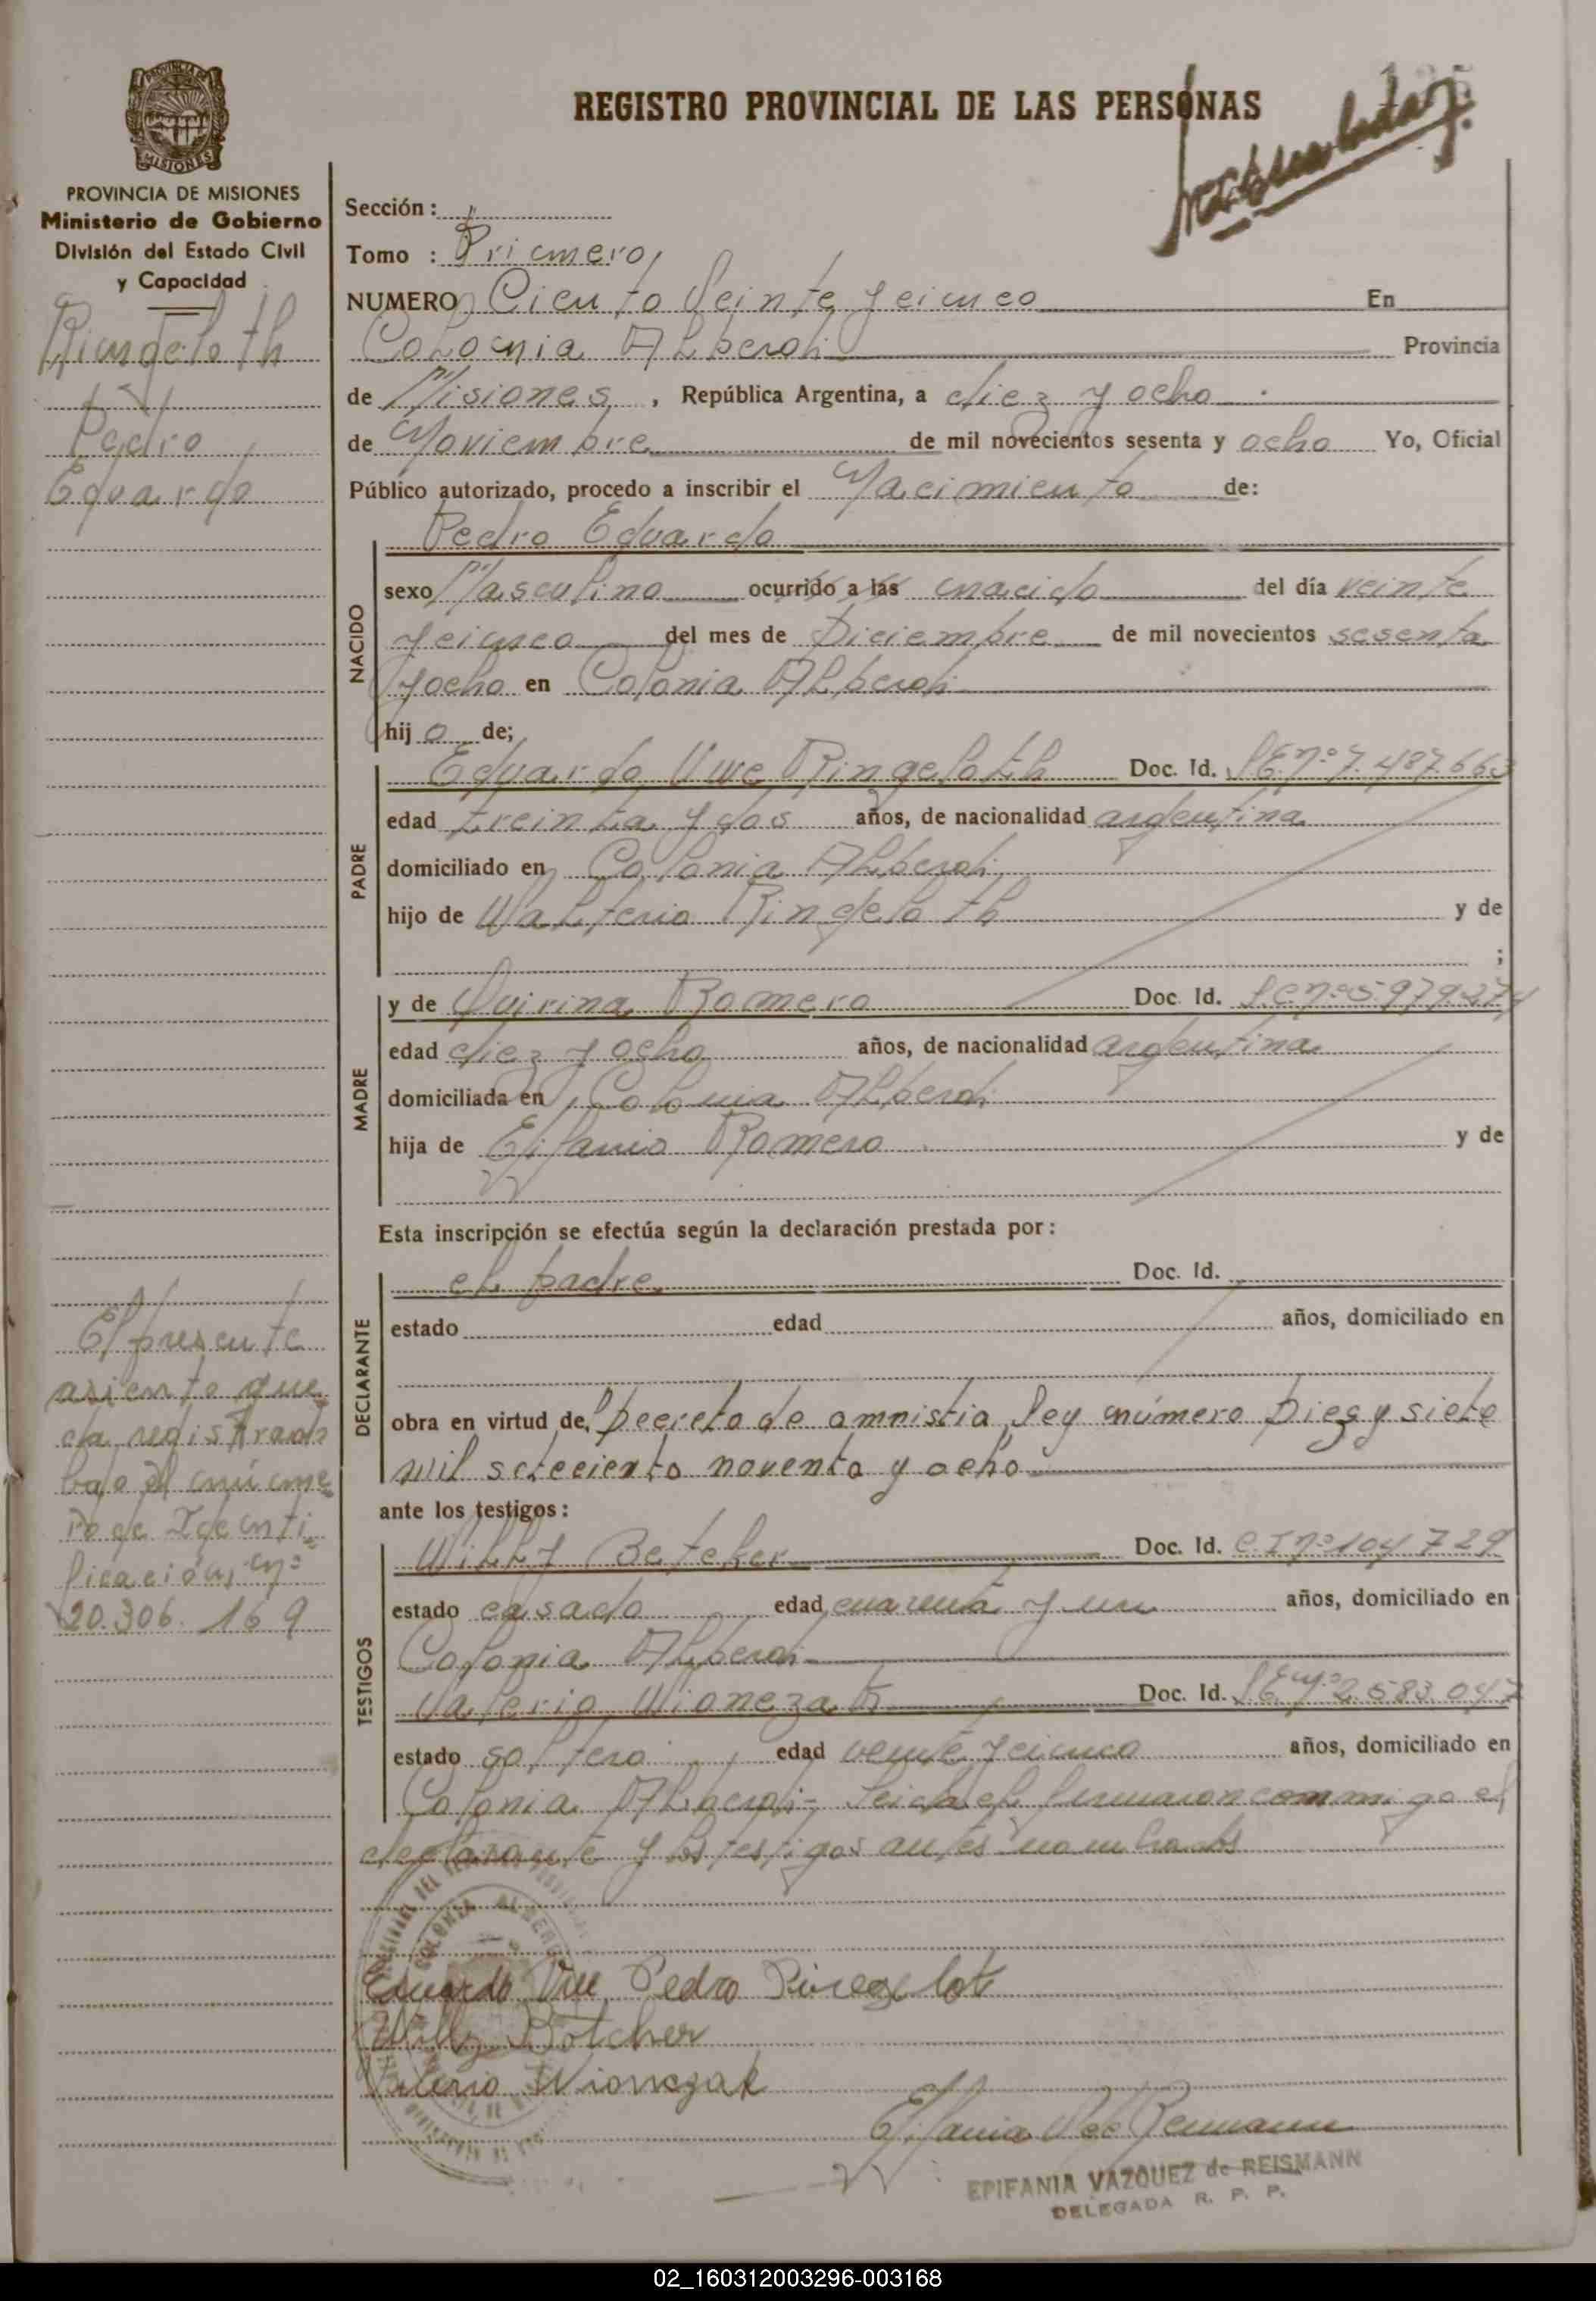 REGISTRO PROVINCIAL DE LAS PERSONAS
PROVINCIA DE MISIONES
Ministerio de Gobierno
División del Estado Civil
y Capacidad
Ringeloth
Pedro
Eduardo
Sección:
Tomo : Primero
NUMERO Ciento Veinte y cinco En
Colonia Alberdi Provincia
de Misiones, República Argentina, a diez y ocho
de Noviembre de mil novecientos sesenta y ocho Yo, Oficial
Público autorizado, procedo a inscribir el Nacimiento de:
NACIDO
Pedro Eduardo
sexo Masculino ocurrido a las nacido del día veinte
y cinco del mes de Diciembre de mil novecientos sesenta
y ocho en Colonia Alberdi
hijo de;
PADRE
Eduardo Uwe Ringeloth Doc. Id. LE nº 7.487.663
edad treinta y dos años, de nacionalidad argentina
domiciliado en Colonia Alberdi
hijo de Walterio Ringeloth y de
;
MADRE
y de Quirina Romero Doc. Id. LC nº 5979274
edad diez y ocho años, de nacionalidad argentina
domiciliada en Colonia Alberdi
hija de Epifanio Romero y de
Esta inscripción se efectúa según la declaración prestada por:
DECLARANTE
el padre Doc. Id.
estado edad años, domiciliado en
obra en virtud del Decreto de amnistia ley número Diez y siete
mil seteciento noventa y ocho
ante los testigos:
TESTIGOS
Willy Betcher Doc. Id. CI nº 104729
estado casado edad cuarenta y un años, domiciliado en
Colonia Alberdi
Valerio Wionezak Doc. Id. LE nº 2.583.047
estado soltero edad veinte y cinco años, domiciliado en
Colonia Alberdi- Leida el firmaron conmigo el
declarante y los testigos antes nombrados
El presente
asiento que
da registrado
bajo el núme
ro de Identi
ficación nº
20.306.169
COLONIA ALBERDI
Eduardo Uve Pedro Ringelot
Willy Bötcher
Valerio Wionczak
Epifania V de Reismann
EPIFANIA VAZQUEZ de REISMANN
DELEGADA R. P. P.
02_160312003296-003168